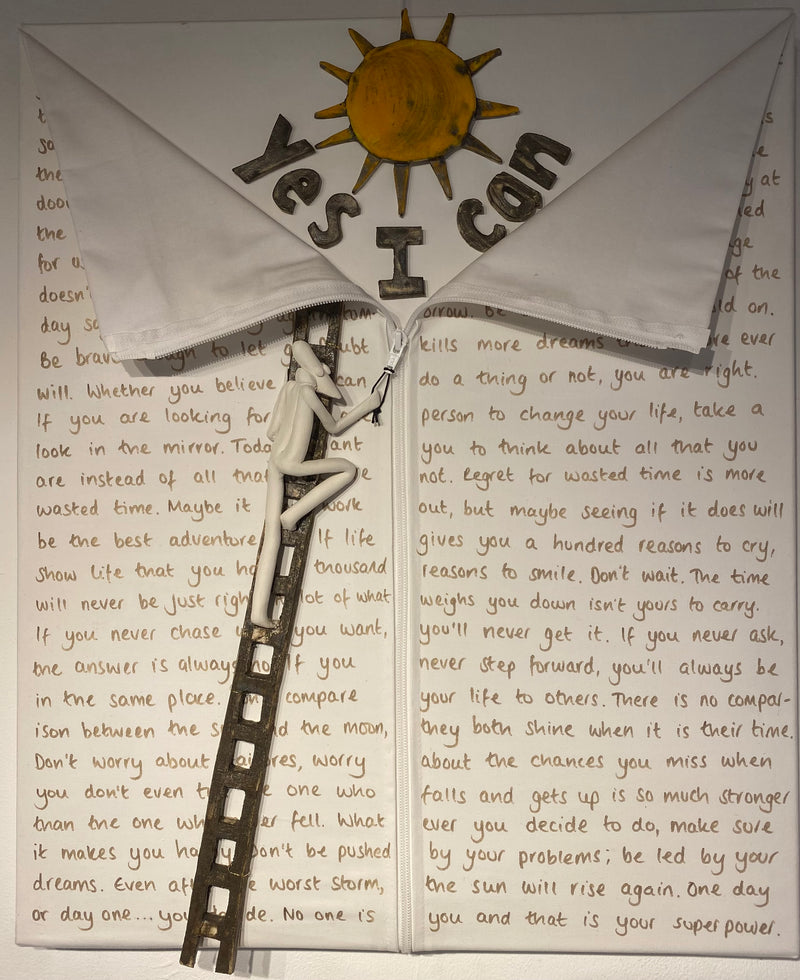 Yes I can
the
the
for
of the
day on.
Be to let kills more dreams ever
will. Whether you believe can do a thing or not, you are right.
If you are looking for person to change your life, take a
look in the mirror. you to think about all that you
are instead of all that not. Regret for wasted time is more
wasted time. Maybe it work out, but maybe seeing if it does will
be the best adventure If life gives you a hundred reasons to cry,
show life that you thousand reasons to smile. Don't wait. The time
will never be just right lot of what weighs you down isn't yours to carry.
If you never chase you want, you'll never get it. If you never ask,
the answer is always no If you never step forward, you'll always be
in the same place. compare your life to others. There is no compar-
ison between the the moon, they both shine when it is their time.
Don't worry about worry about the chances you miss when
you don't even one who falls and gets up is so much stronger
than the one fell. What ever you decide to do, make sure
it makes you Don't be pushed by your problems; be led by your
dreams. Even worst storm, the sun will rise again. One day
or day one... you No one is you and that is your superpower.